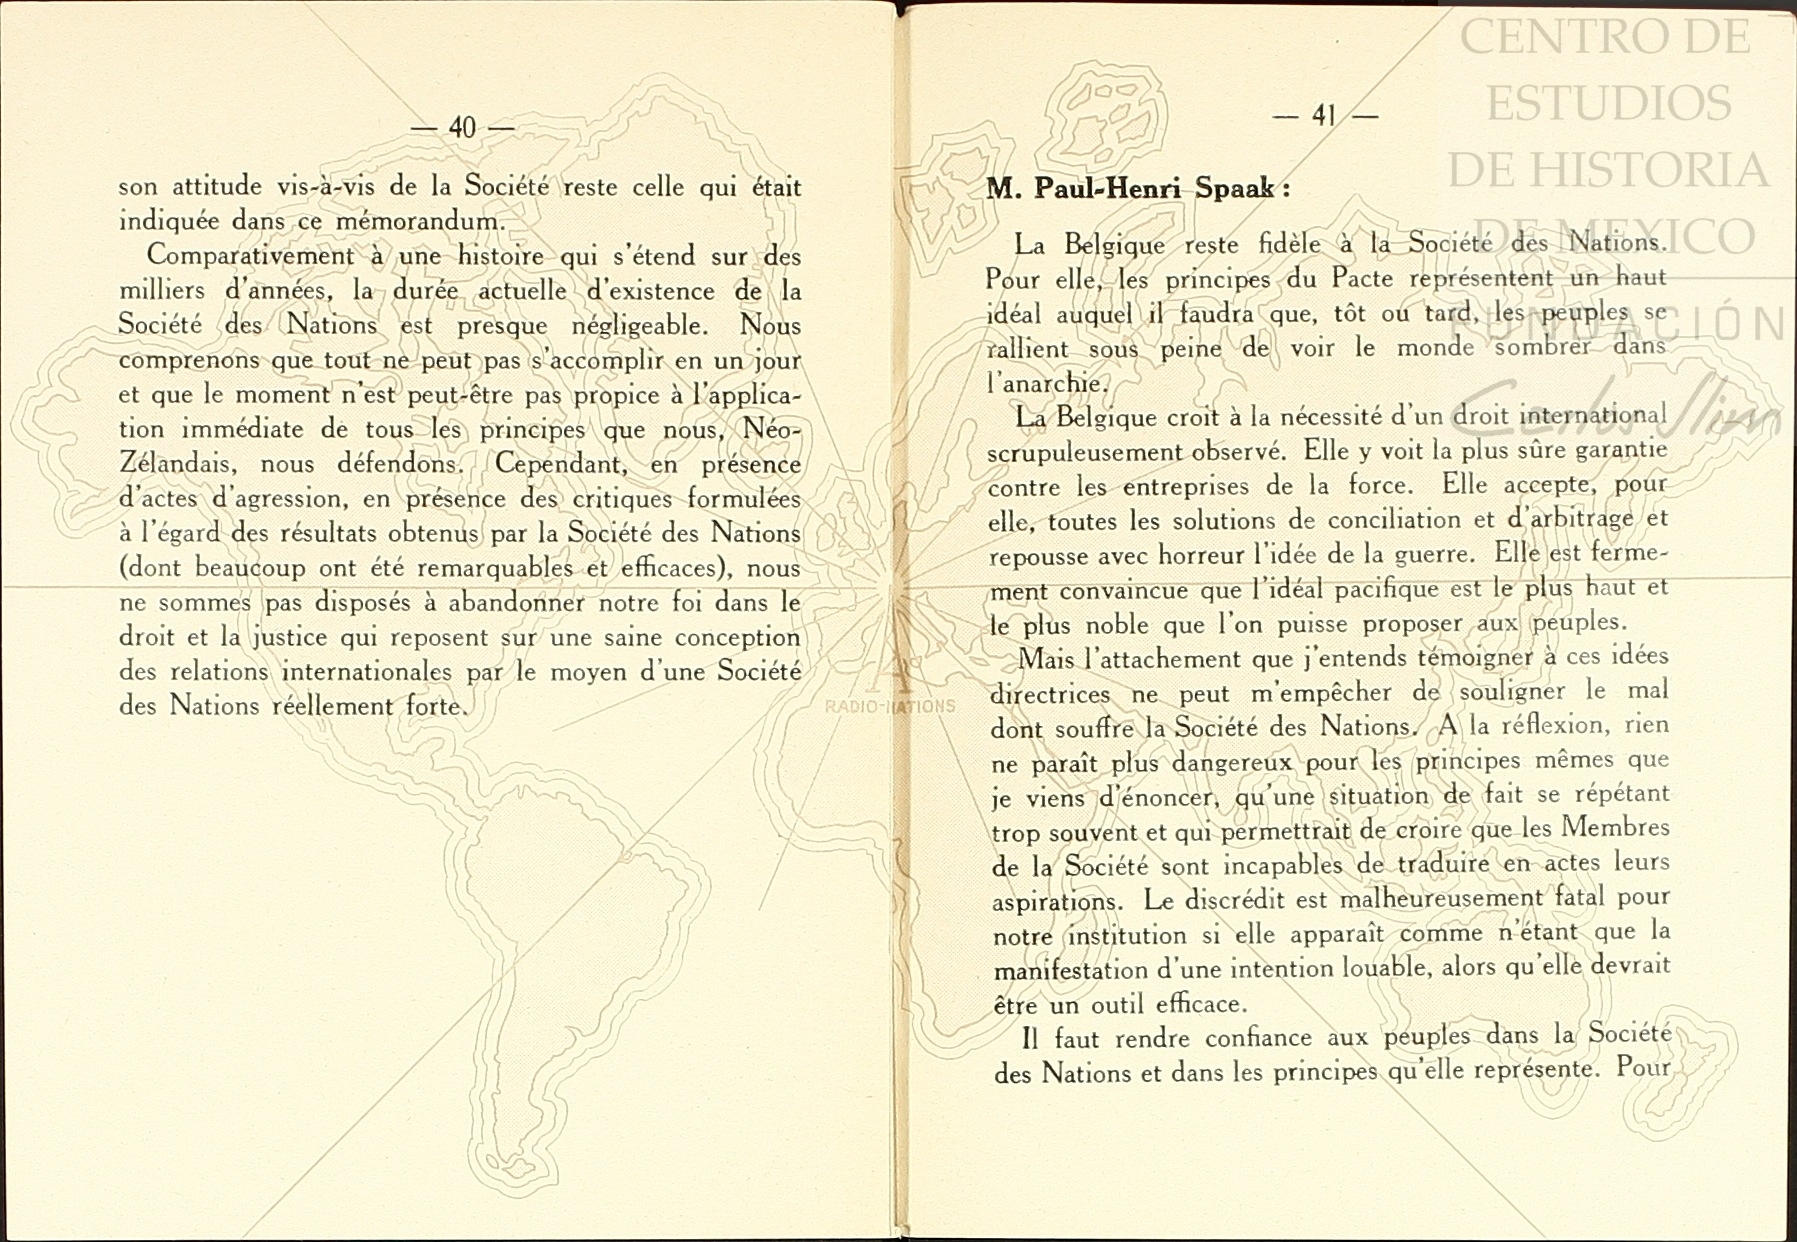 — 40 —
son attitude vis-à-vis de la Société reste celle qui était
indiquée dans ce mémorandum.
Comparativement à une histoire qui s'étend sur des
milliers d'années, la durée actuelle d'existence de la
Société des Nations est presque négligeable. Nous
comprenons que tout ne peut pas s'accomplir en un jour
et que le moment n'est peut-être pas propice à l'applica-
tion immédiate de tous les principes que nous, Néo-
Zélandais, nous défendons. Cependant, en présence
d'actes d'agression, en présence des critiques formulées
à l'égard des résultats obtenus par la Société des Nations
(dont beaucoup ont été remarquables et efficaces), nous
ne sommes pas disposés à abandonner notre foi dans le
droit et la justice qui reposent sur une saine conception
des relations internationales par le moyen d'une Société
des Nations réellement forte.
RADIO-NATIONS
— 41 —
M. Paul-Henri Spaak :
La Belgique reste fidèle à la Société des Nations.
Pour elle, les principes du Pacte représentent un haut
idéal auquel il faudra que, tôt ou tard, les peuples se
rallient sous peine de voir le monde sombrer dans
l'anarchie.
La Belgique croit à la nécessité d'un droit international
scrupuleusement observé. Elle y voit la plus sûre garantie
contre les entreprises de la force. Elle accepte, pour
elle, toutes les solutions de conciliation et d'arbitrage et
repousse avec horreur l'idée de la guerre. Elle est ferme-
ment convaincue que l'idéal pacifique est le plus haut et
le plus noble que l'on puisse proposer aux peuples.
Mais l'attachement que j'entends témoigner à ces idées
directrices ne peut m'empêcher de souligner le mal
dont souffre la Société des Nations. A la réflexion, rien
ne paraît plus dangereux pour les principes mêmes que
je viens d'énoncer, qu'une situation de fait se répétant
trop souvent et qui permettrait de croire que les Membres
de la Société sont incapables de traduire en actes leurs
aspirations. Le discrédit est malheureusement fatal pour
notre institution si elle apparaît comme n'étant que la
manifestation d'une intention louable, alors qu'elle devrait
être un outil efficace.
Il faut rendre confiance aux peuples dans la Société
des Nations et dans les principes qu'elle représente. Pour
CENTRO DE
ESTUDIOS
DE HISTORIA
DE MEXICO
FUNDACIÓN
Carlos Slim